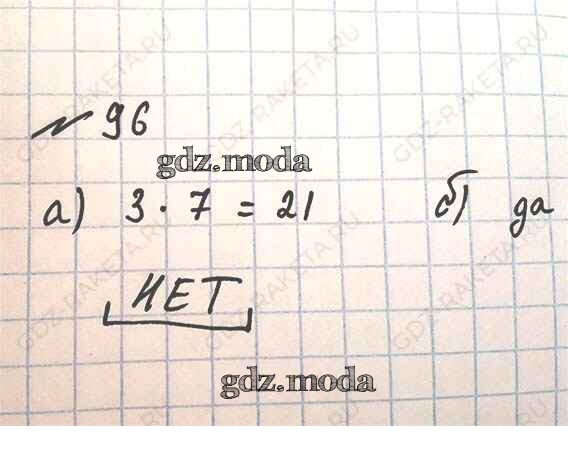 № 96
gdz.moda
а) 3 · 7 = 21 б) да
НЕТ
gdz.moda
GDZ-RAKETA.RU
GDZ-RAKETA.RU
GDZ-RAKETA.RU
GDZ-RAKETA.RU
GDZ-RAKETA.RU
GDZ-RAKETA.RU